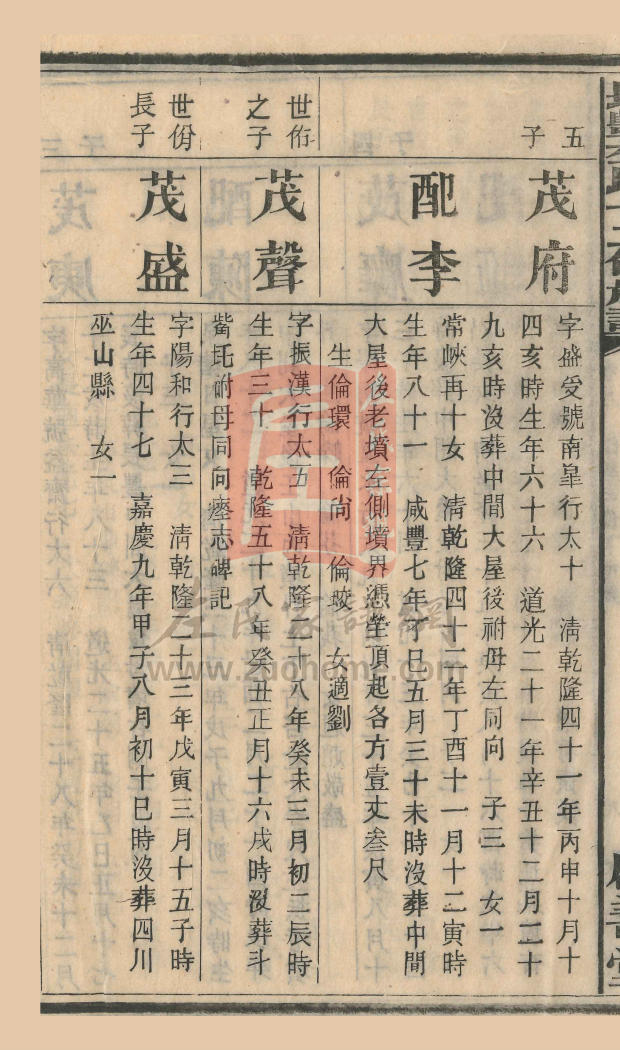 五
子
茂府
字盛受號南皐行太十　清乾隆四十一年丙申十月十
四亥時生年六十六　道光二十一年辛丑十二月二十
九亥時沒葬中間大屋後祔母左同向　子三　女一
配李
常峽再十女　清乾隆四十二年丁酉十一月十二寅時
生年八十一　咸豐七年丁巳五月三十未時沒葬中間
大屋後老墳左側墳界憑塋頂起各方壹丈叁尺
生倫環　倫尚　倫蛟　女適劉
世侨
之子
茂聲
字振漢行太五　清乾隆二十八年癸未三月初二辰時
生年三十　乾隆五十八年癸丑正月十六戌時沒葬斗
觜圫祔母同向瘞志碑記
世份
長子
茂盛
字陽和行太三　清乾隆二十三年戊寅三月十五子時
生年四十七　嘉慶九年甲子八月初十巳時沒葬四川
巫山縣　女一
左氏家譜網
www.zuohome.com